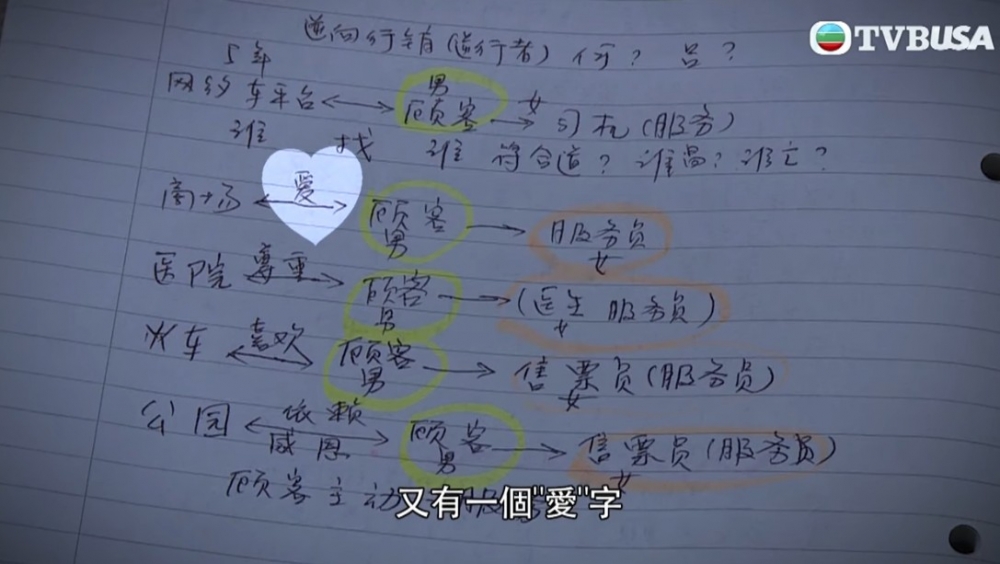 TVBUSA
逆向行销(逆行者) 何? 吕?
5年
男
网约车平台 顾客 女 司机(服务)
谁 找 谁 符合道? 谁富? 谁亡?
商场 愛 顾客 服务员
男 女
医院 尊重 顾客 (医生 服务员)
男 女
火车 喜欢 顾客 售票员(服务员)
男 女
公园 依赖 顾客 售票员(服务员)
感恩 男 女
顾客主动
又有一個"愛"字